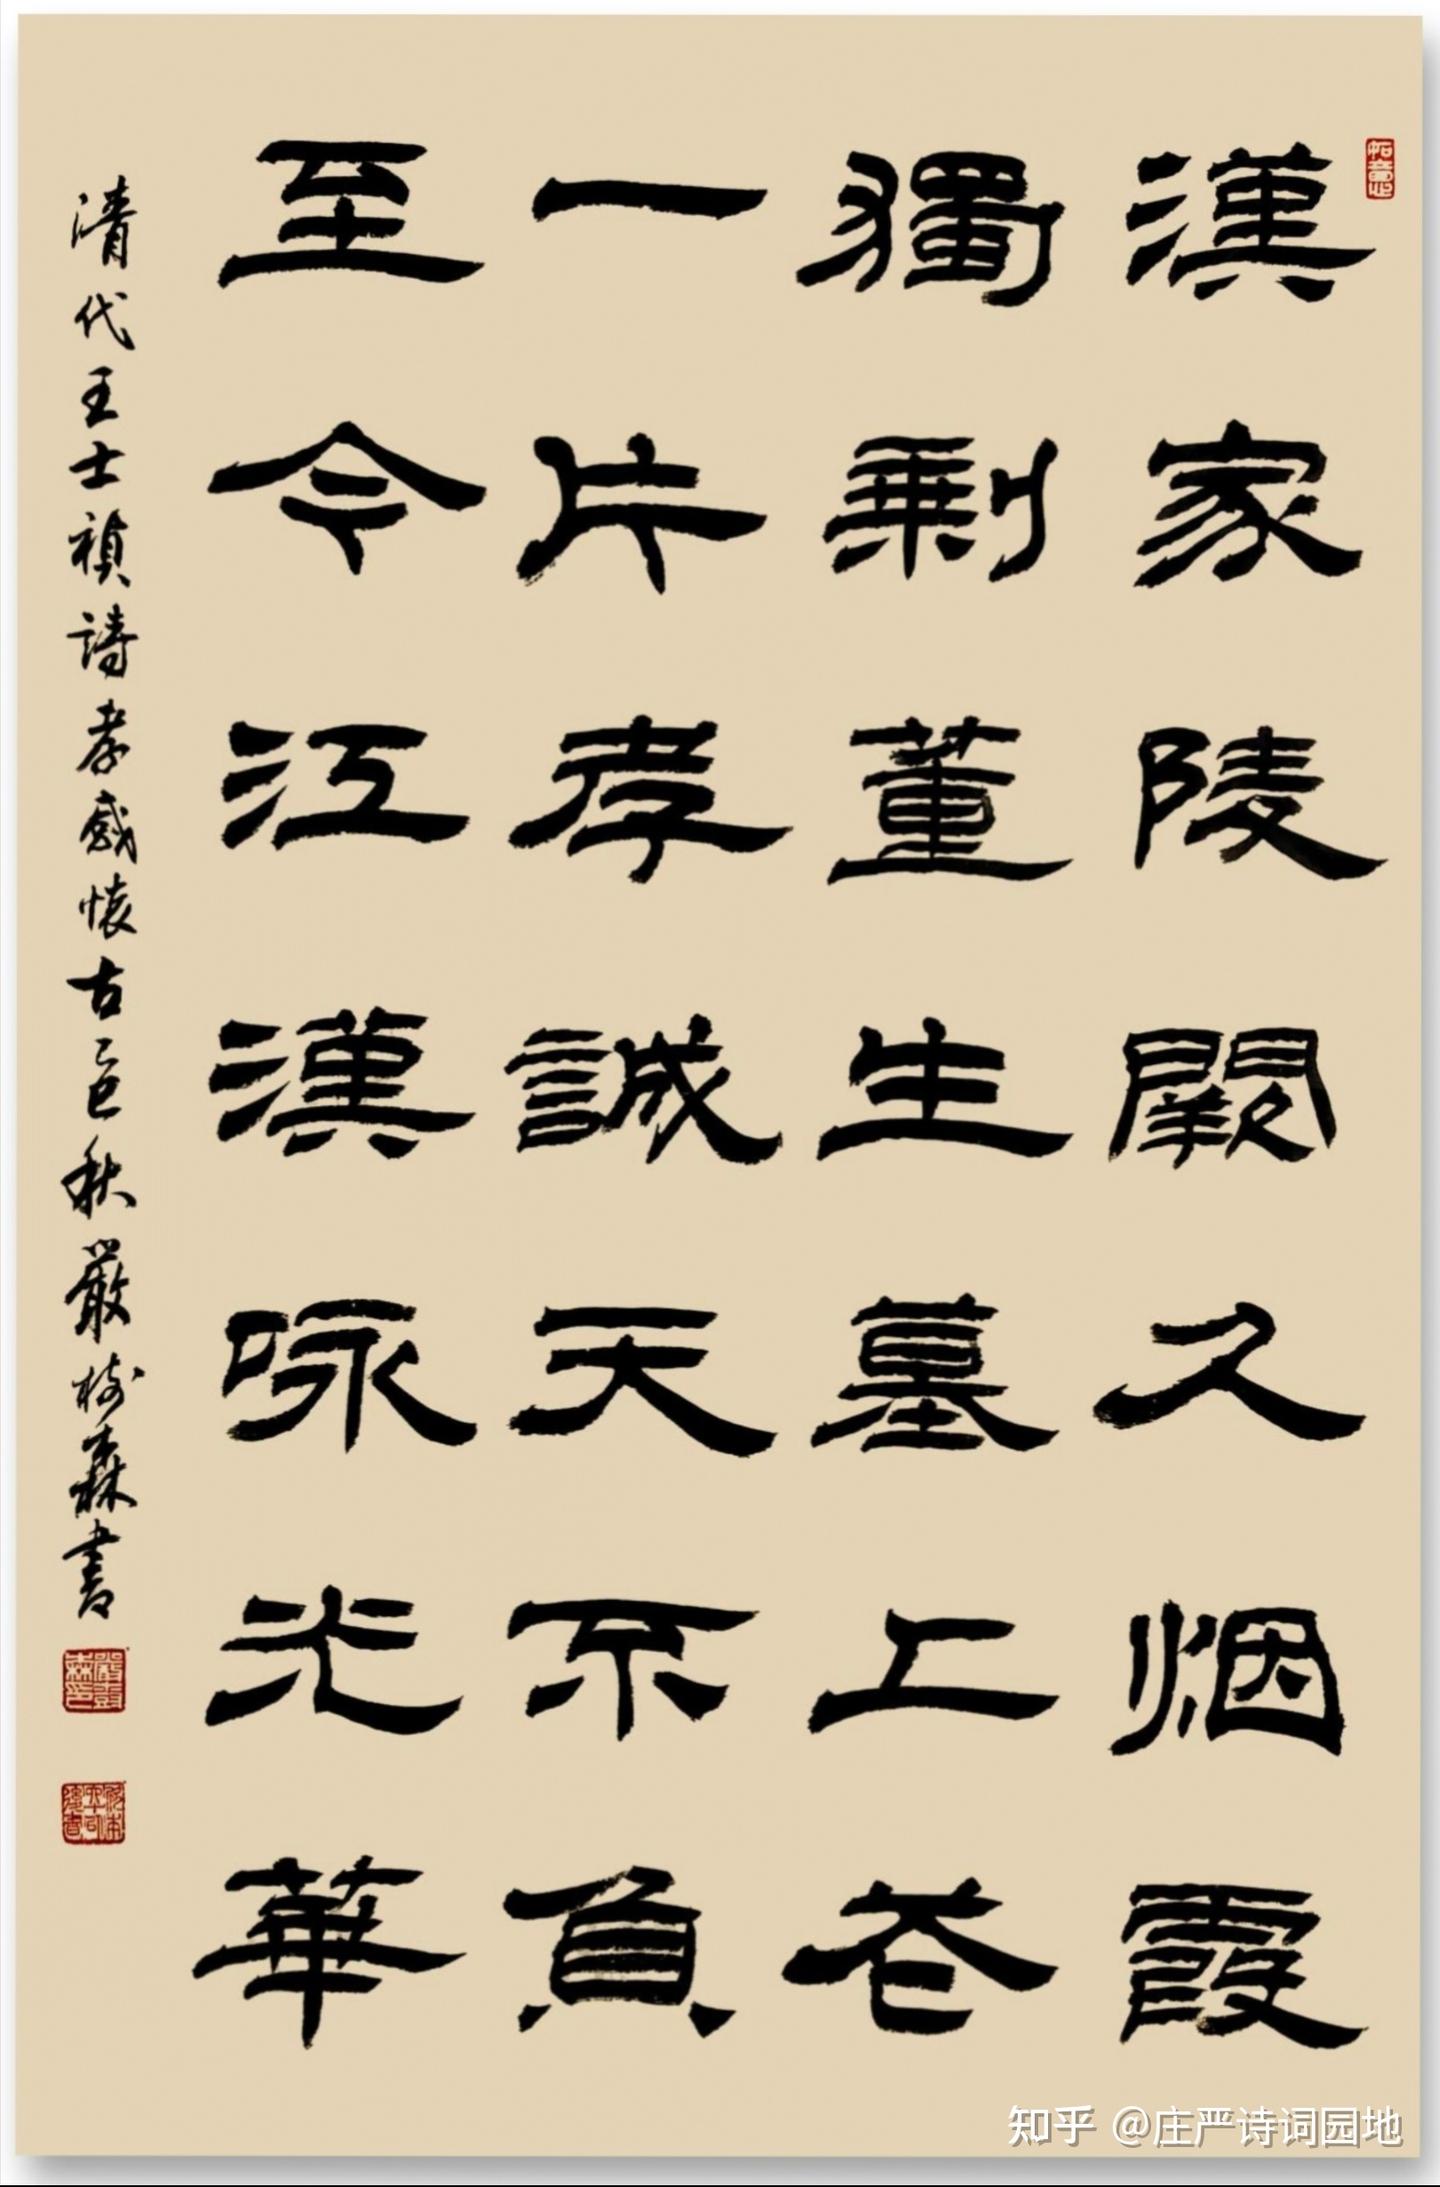 漢家陵闕久烟霞
獨剩董生墓上花
一片孝誠天不負
至今江漢咏光華
清代王士禎詩孝感懷古乙巳秋嚴樹森書
知乎 @庄严诗词园地